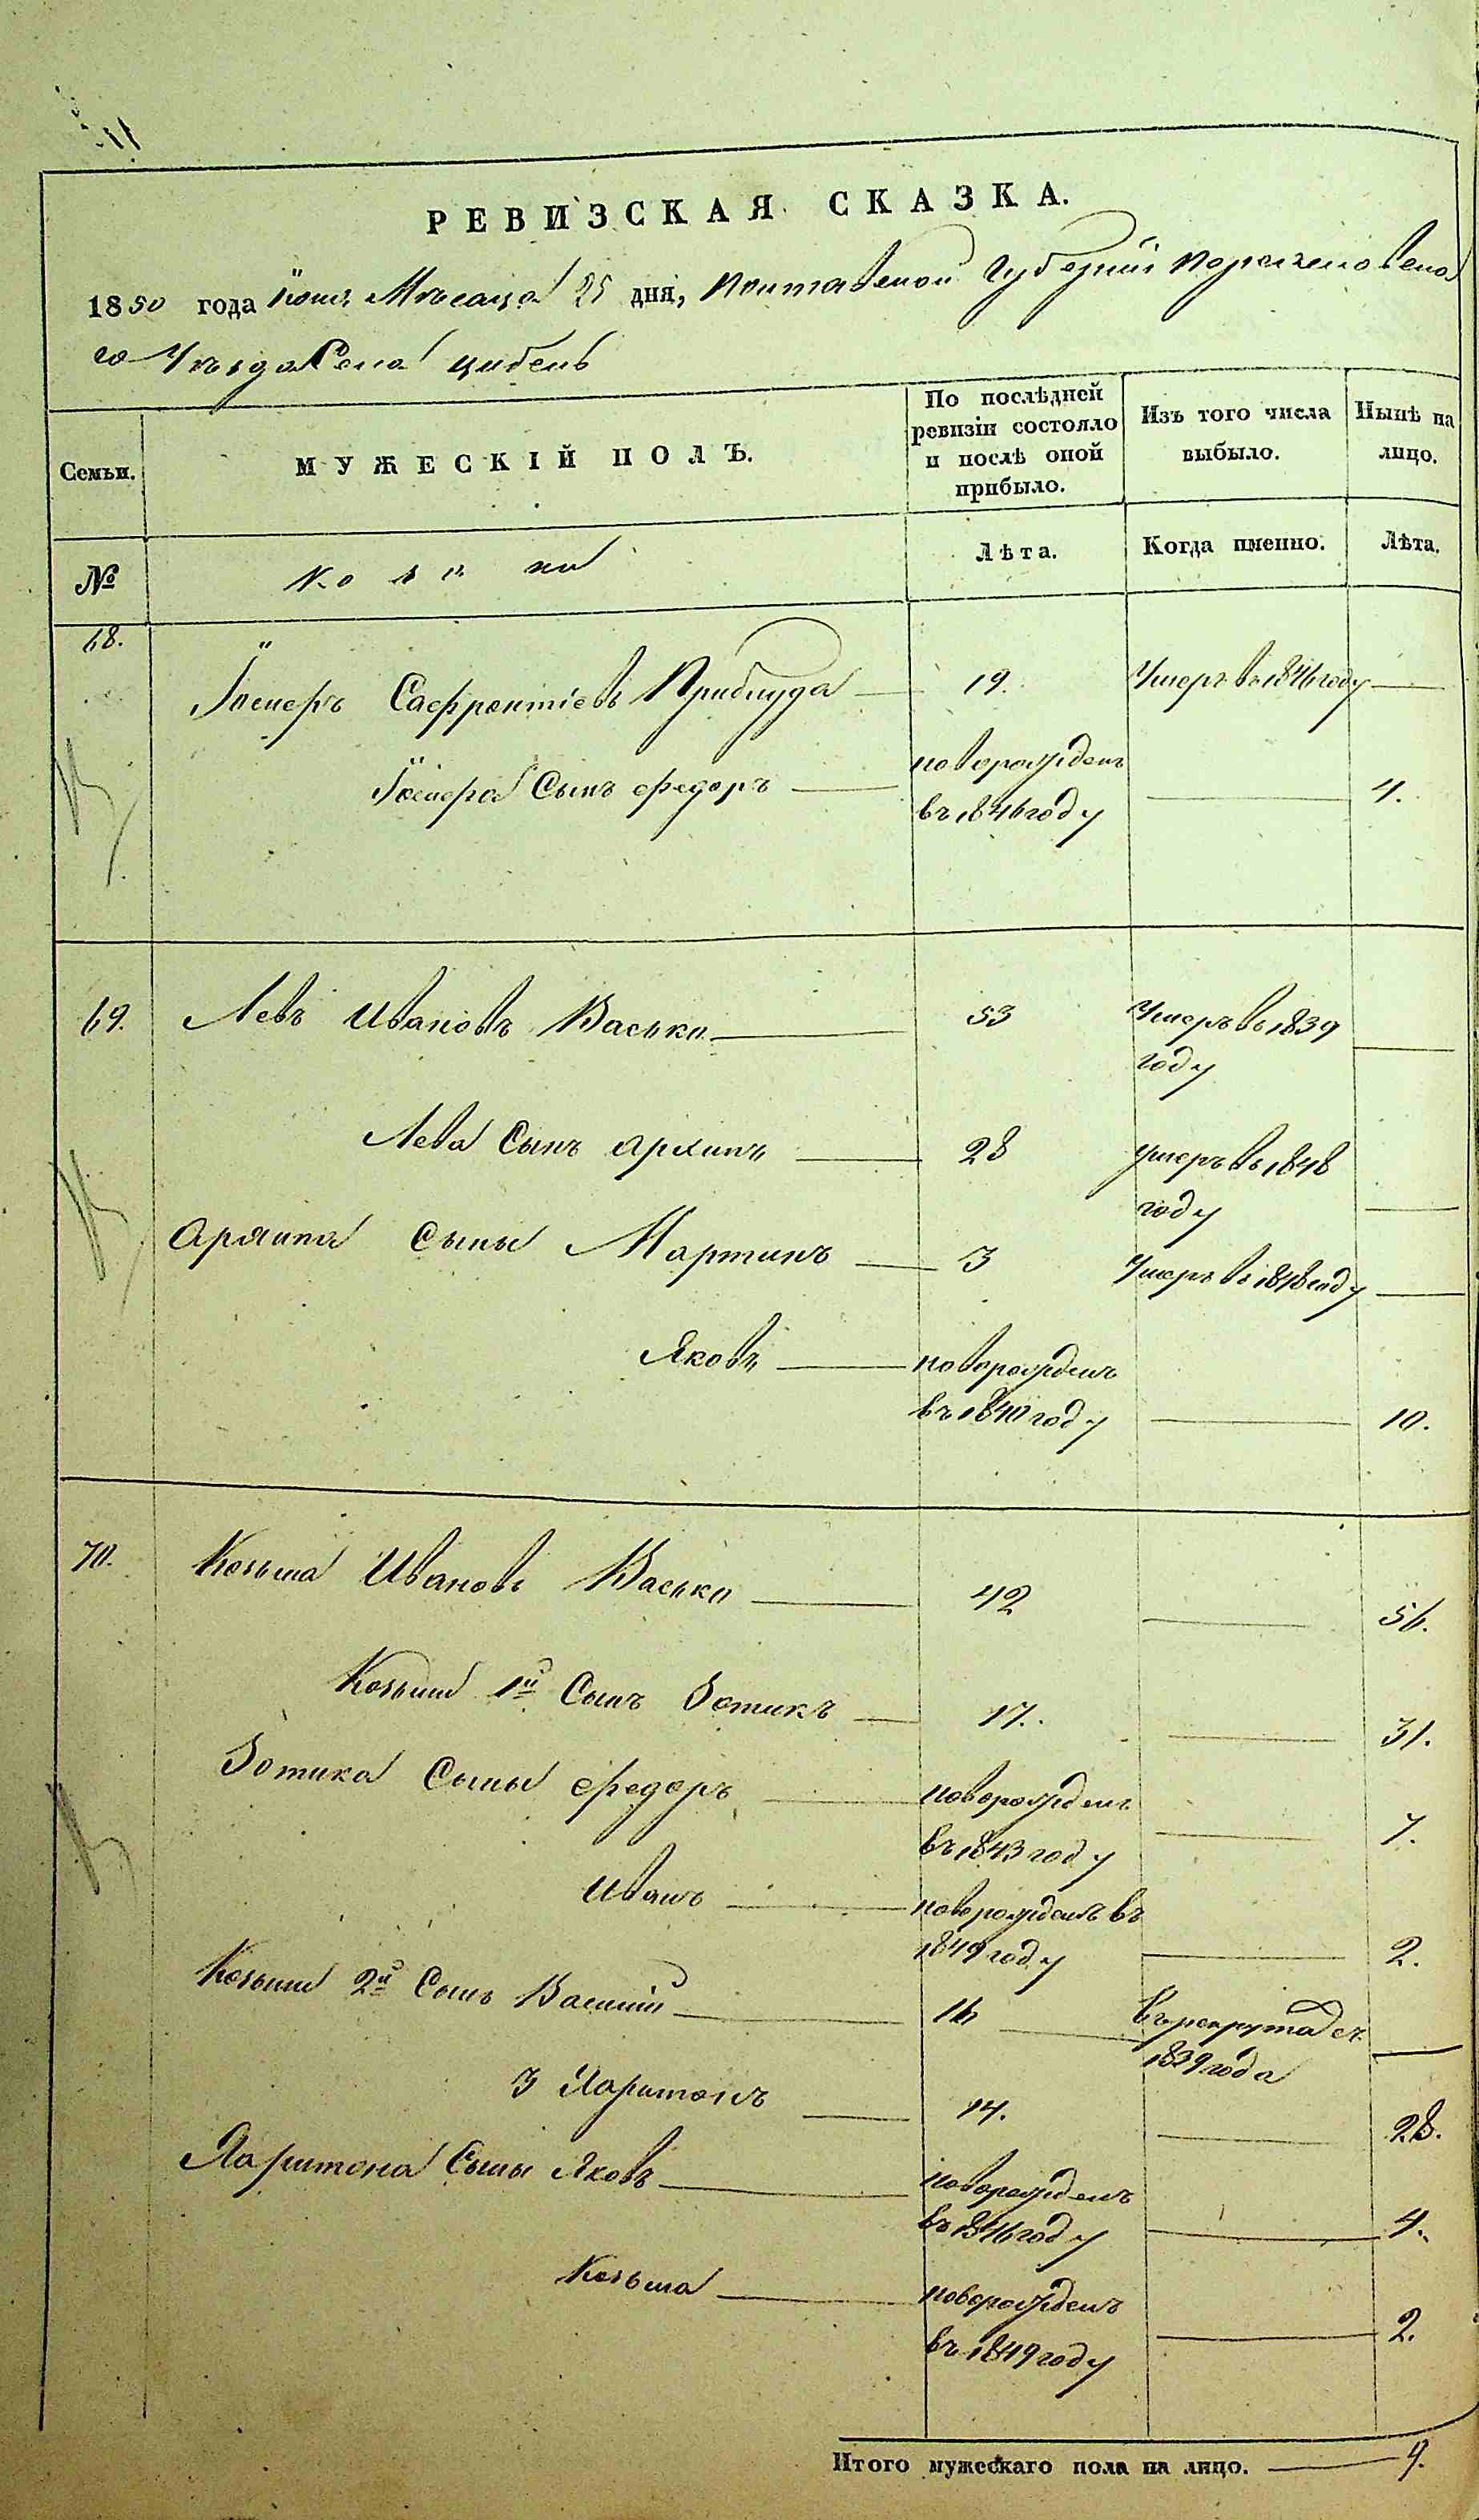 РЕВИЗСКАЯ СКАЗКА.
1850 года Іюня Мѣсяца 25 дня, Полтавской Губерніи Переяславска
го Уѣзда Села Цибель
Семьи. МУЖЕСКІЙ ПОЛЪ. По послѣдней ревизіи состояло и послѣ оной прибыло. Изъ того числа выбыло. Нынѣ на лицо.
№ Козаки Лѣта. Когда именно. Лѣта.
68.
Іосифъ Приблуда 19. Умеръ въ 1846 году
Іосифа Сынъ Федоръ новорожденъ
въ 1846 году 4.
69. Левъ Ивановъ Васько 53 Умеръ въ 1839
году
Лева Сынъ Архипъ 28 умеръ въ 1848
году
Архипа Сыны Мартинъ 3 Умеръ въ 1848 году
Яковъ новорожденъ
въ 1840 году 10.
70. Козьма Ивановъ Васько 42 56.
Козьмы 1й Сынъ Зотикъ 17. 31.
Зотика Сыны Федоръ новорожденъ
въ 1843 году 7.
Иванъ новорожденъ въ
1849 году 2.
Козьмы 2й Сынъ Василій 16 въ рекрутах съ
1839 года
3 Харитонъ 14. 28.
Харитона Сыны Яковъ новорожденъ
въ 1846 году 4.
Козьма новорожденъ
въ 1849 году 2.
Итого мужескаго пола на лицо. 9.